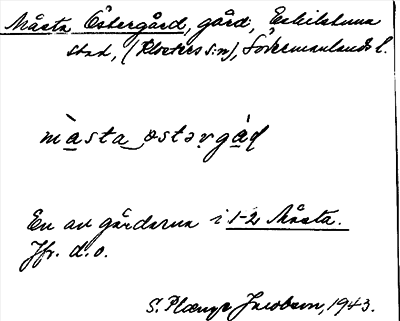 Måsta Östergård, gård, Eskilstuna
stad, (Klosters s:n), Södermanlands l.
måsta östərgåḍ
En av gårdarna i 1-2 Måsta.
Jfr. d.o.
S. Plænge Jacobson, 1943.